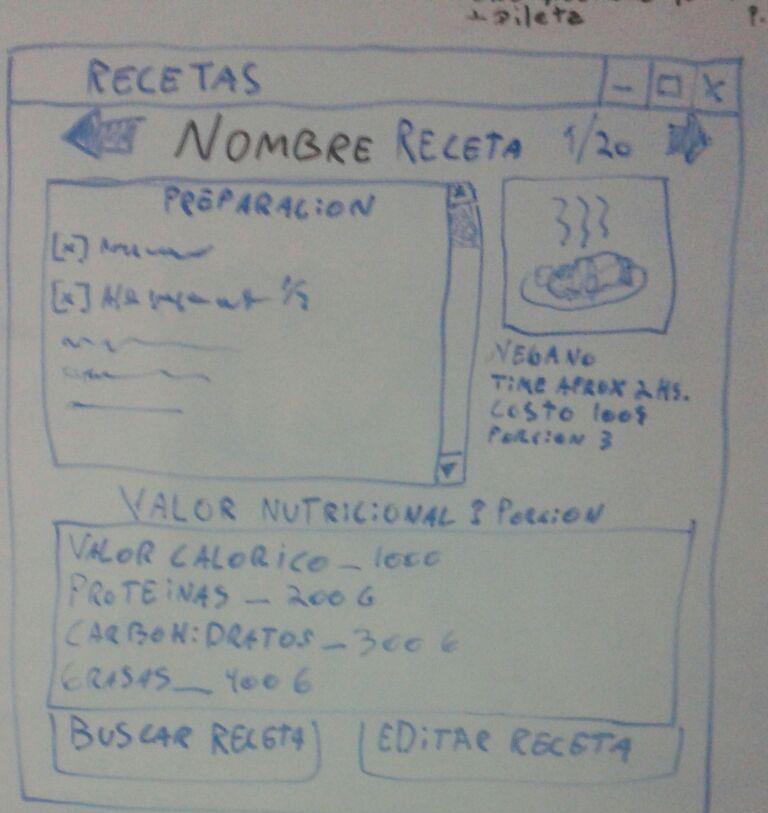 + Pileta
P.
RECETAS - □ X
NOMBRE RECETA 1/20
PREPARACION
[x]
[x] 1/2
VEGANO
TIME APROX 2 HS.
COSTO 100$
PORCION 3
VALOR NUTRICIONAL PORCION
VALOR CALORICO _ 1000
PROTEINAS _ 200 G
CARBOHIDRATOS _ 300 G
GRASAS _ 400 G
BUSCAR RECETA
EDITAR RECETA